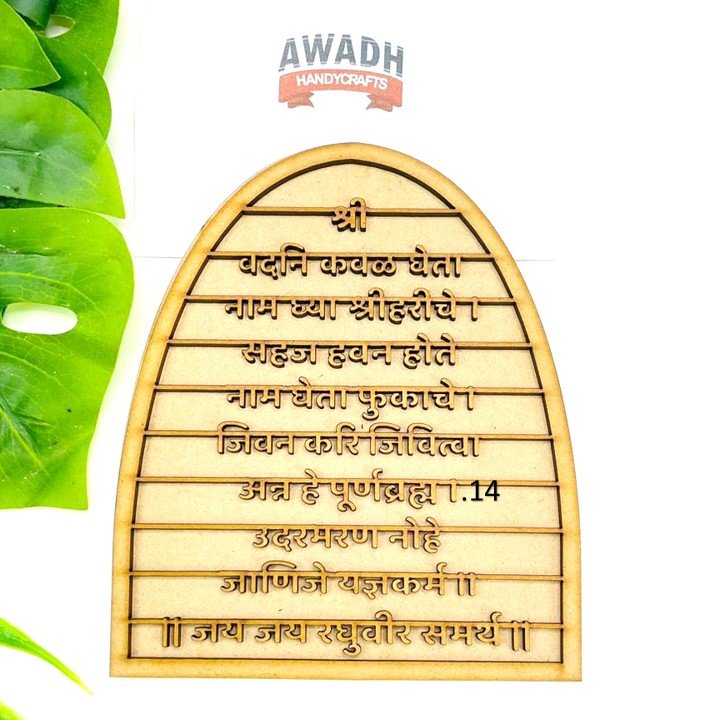 AWADH
HANDYCRAFTS
श्री
वदनि कवळ घेता
नाम घ्या श्रीहरीचे ।
सहज हवन होते
नाम घेता फुकाचे ।
जिवन करि जिवित्वा
अन्न हे पूर्णब्रह्म । .14
उदरमरण नोहे
जाणिजे यज्ञकर्म ॥
॥ जय जय रघुवीर समर्थ ॥